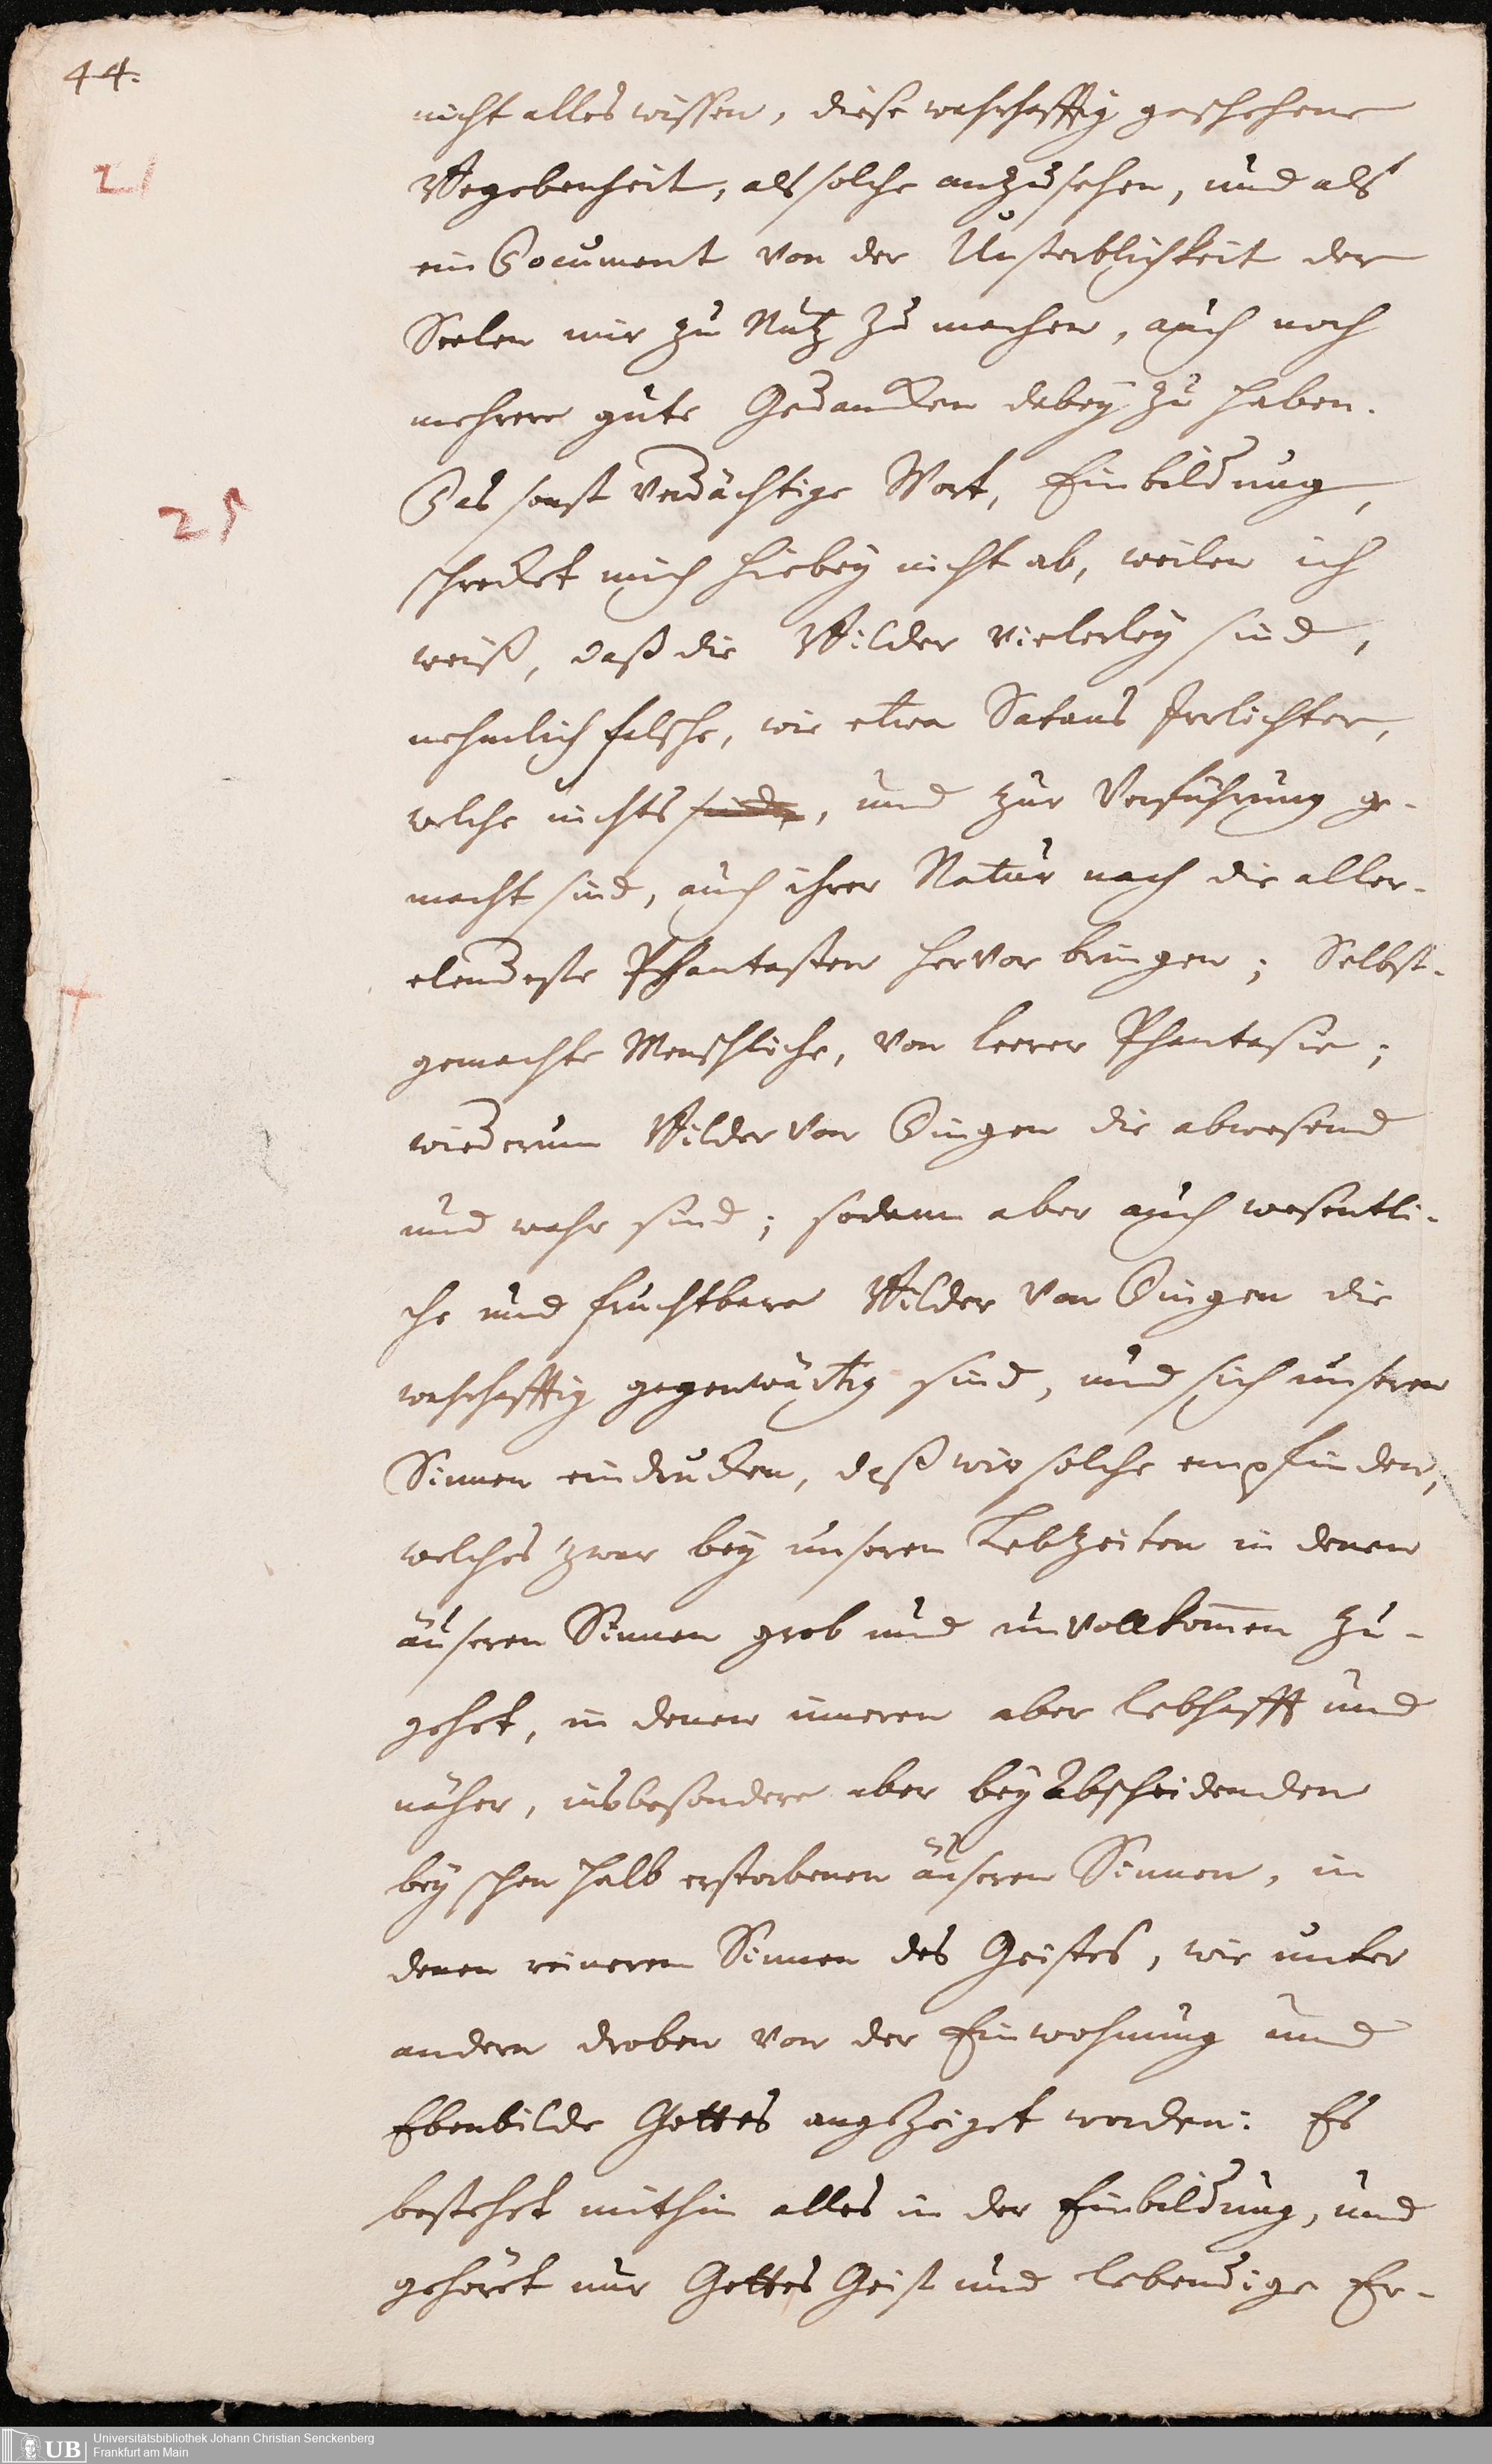 44.
nicht alles wissen, diese wahrhafftig geschehene
21
Begebenheit, als solche anzusehen, und als
ein Document von der Unsterblichkeit der
Seelen mir zu Nutz zu machen, auch noch
mehrere gute Gedancken dabey zu haben.
Das sonst verdächtige Wort, Einbildung,
25
schrecket mich hiebey nicht ab, weilen ich
weiß, daß die Bilder vielerley sind,
nehmlich falsche, wie etwa Satans Irrlichter,
welche nichts sind, und zur Verführung ge-
macht sind, auch ihrer Natur nach die aller-
elendeste Phantasten hervor bringen; Selbst-
gemachte Menschliche, von leerer Phantasie;
wiederum Bilder von Dingen die abwesend
und wahr sind; sodann aber auch wesentli-
che und fruchtbare Bilder von Dingen die
wahrhafftig gegenwärtig sind, und sich unseren
Sinnen eindrucken, daß wir solche empfinden,
welches zwar bey unseren Lebzeiten in denen
äuseren Sinnen grob und unvollkom̄en zu-
gehet, in denen inneren aber lebhafft und
näher, insbesondere aber bey abscheidenden
bey schon halb erstorbenen äuseren Sinnen, in
denen reineren Sinnen des Geistes, wie unter
andern droben von der Einwohnung und
Ebenbilde Gottes angezeiget worden: Es
bestehet mithin alles in der Einbildung, und
gehöret nur Gottes Geist und lebendige Er-
UB
Universitätsbibliothek Johann Christian Senckenberg
Frankfurt am Main